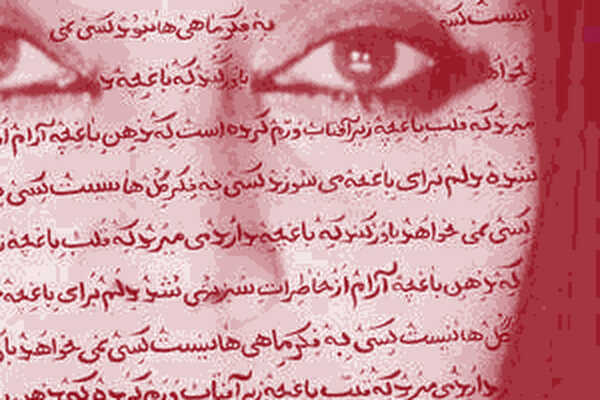 نیست کسی به فکر ماهی ها کسی نمی
خواهد باور کند که باغچه
میرد که قلب باغچه زیر آفتاب ورم کرده است که ذهن باغچه آرام
شود دلم برای باغچه می سوزد کسی به فکر گل ها نیست کسی
کسی نمی خواهد باور کند که باغچه دارد می میرد که قلب باغچه
که ذهن باغچه آرام از خاطرات شود دلم برای باغچه
گل ها نیست کسی به فکر ماهی ها نیست کسی نمی خواهد
دارد می میرد که قلب باغچه زیر آفتاب ورم کرده که ذهن